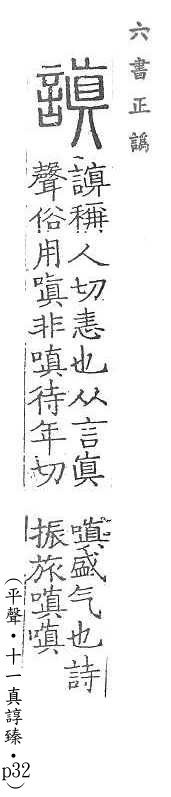 六書正譌
謓
謓稱人切恚也从言眞
聲俗用嗔非嗔待年切
嗔盛气也詩
振旅嗔嗔
（平聲．十一真諄臻．p32）